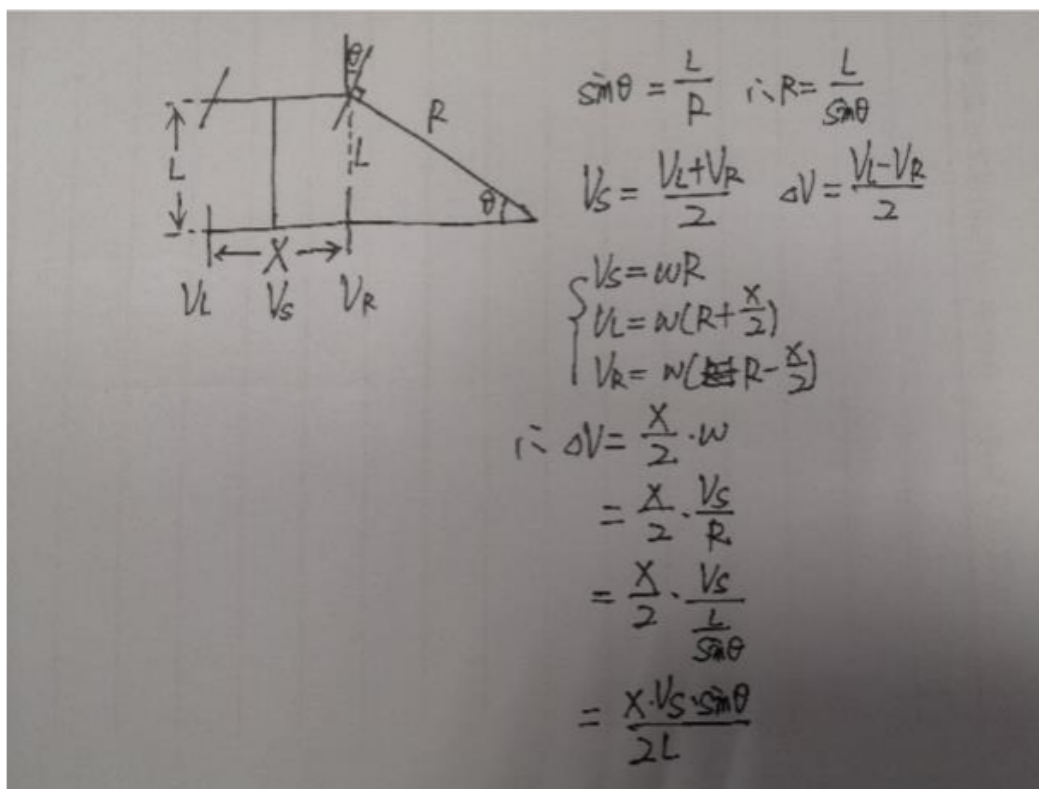 θ
R
L
L
θ
X
V_L V_S V_R
sinθ = L/R ∴ R = L/sinθ
V_S = (V_L+V_R)/2 ΔV = (V_L-V_R)/2
V_S = wR
V_L = w(R + X/2)
V_R = w(R - X/2)
∴ ΔV = X/2 · w
= X/2 · V_S/R
= X/2 · V_S/(L/sinθ)
= X·V_S·sinθ/2L